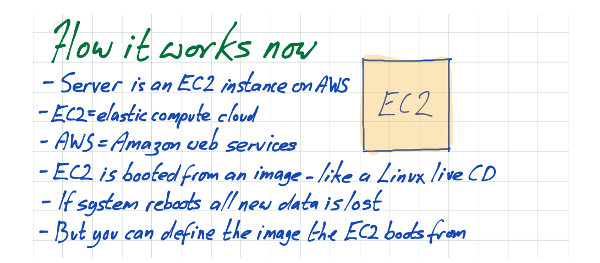 How it works now
- Server is an EC2 instance on AWS
- EC2=elastic compute cloud
- AWS=Amazon web services
EC2
- EC2 is booted from an image - like a Linux live CD
- If system reboots all new data is lost
- But you can define the image the EC2 boots from